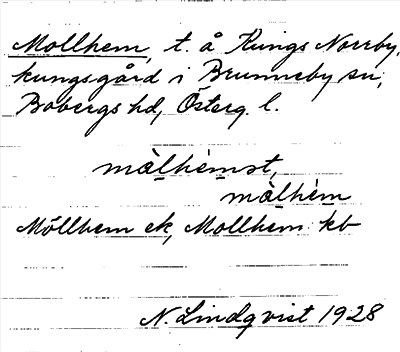 Mollhem, t. å Kungs Norrby,
kungsgård i Brunneby sn,
Bobergs hd, Österg. l.
màlhèmst,
màlhèm
Möllhem ek, Mollhem kb
N. Lindqvist 1928